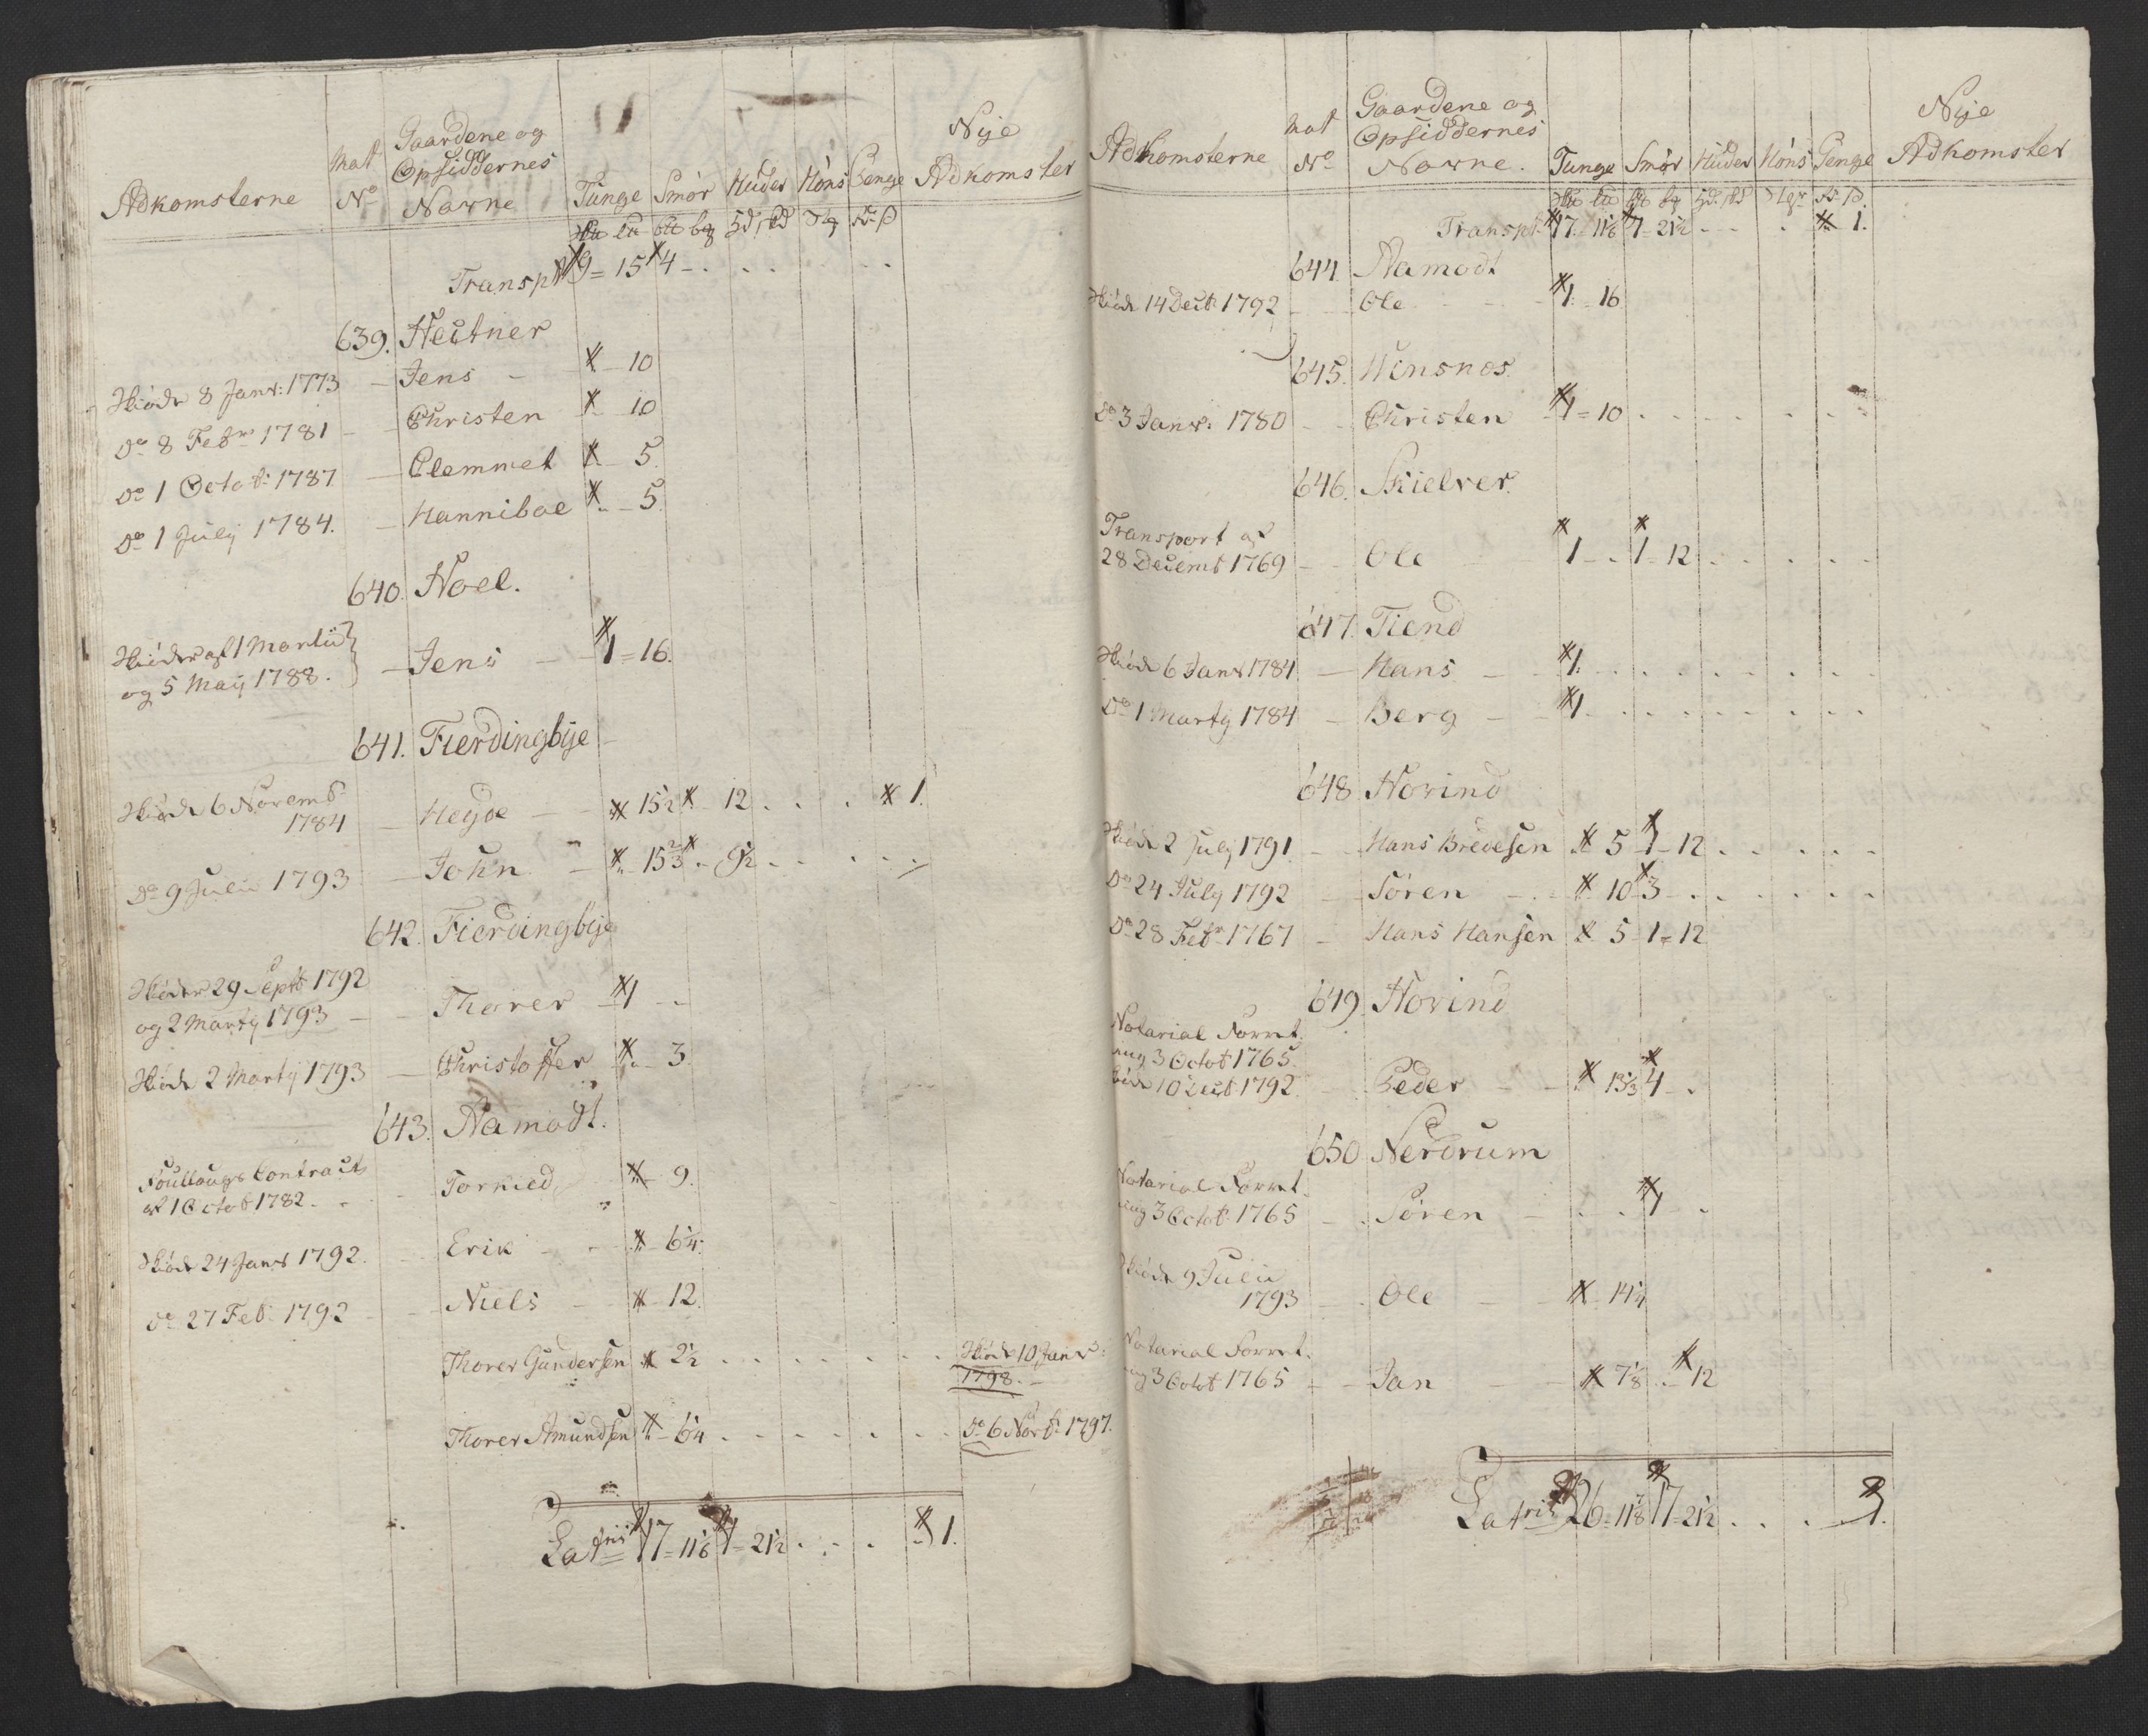 Adkomsterne Mat No Gaardene og Opsiddernes Navne Tunge Smør Huder Høns Penge Nye Adkomster
Transpt 9 = 15 4 - . . . . . .
639. Heitner
Skiøde 8 Janr: 1773 - Jens - 10
Do 8 Febr 1781 - Christen - 10
Do 1 Octobr: 1787 - Clemmet - 5.
Do 1 July 1784. - Hannibal - 5.
640. Noel.
Skiøder af 1 Martii
og 5 Maij 1788. - Jens - 1 = 16.
641. Fierdingbye
Skiøde 6 Novemb
1784 - Heyde - 15½ 12 . . . 1.
Do 9 Julii 1793 - John - 15⅔ - 9½ - . . . .
642. Fierdingbye
Skiøder 29 Septb 1792
og 2 Marty 1793 - Thorer 1 - -
Skiøde 2 Marty 1793 - Christoffer - 3.
643. Aamodt.
Contract
af 1 Octob 1782. - Torkied - 9.
Skiøde 24 Janr 1792. - Erik - 6¼.
Do 27 Feb: 1792 - Niels - 12.
Thorer Gundersen 2½ . . . . . . . Skiøde 10 Janr:
1798. -
Thorer Amundsen - 6¼ . . . . . . . Do 6 Novb: 1797.
Latris 17 = 11⅙ 7 = 21½ . . . 1.
Adkomsterne Mat No Gaardene og Opsiddernes Navne. Tunge Smør Huder Høns Penge Nye Adkomster
Transpt. 17. 11⅙ 7 - 21½ - - . 1.
644. Aamodt
Skiøde 14 Decb: 1792 - Ole - 1. = 16
645. Hensnos.
Do 3 Janr: 1780 - Christen - 1 = 10 . . . . . . .
646. Skielver.
Transport af
28 Decemb 1769 - Ole - 1 - . 1 - 12 . . . . .
647. Tiend
Skiøde 6 Janr 1784 - Hans - 1. . . . . . . . .
Do 1 Marty 1784 - Berg - 1 . . . . . . . .
648 Hovind
Skiøde 2 July 1791. - Hans Bredesen 5 - 1 - 12 . . . . .
Do 24 July 1792 - Søren - 10 - 3 - . . . . . .
Do 28 Febr 1767 - Hans Hansen 5 - 1 = 12
649. Hovind
Notarial Forret
ning 3 Octob 1765.
Skiøde 10 Decb 1792. - Peder - 13⅓ 4 - .
650 Nerdrum
Notarial Forret
ning 3 Octob: 1765 - Søren - . . 1 - .
Skiøde 9 Julii
1793 - Ole - 14¼
Notarial Forret.
ning 3 Octob 1765 - Jan - 7⅛ . - 12
Latris 26 = 11⅞ 17 = 21½ . . . . 1.